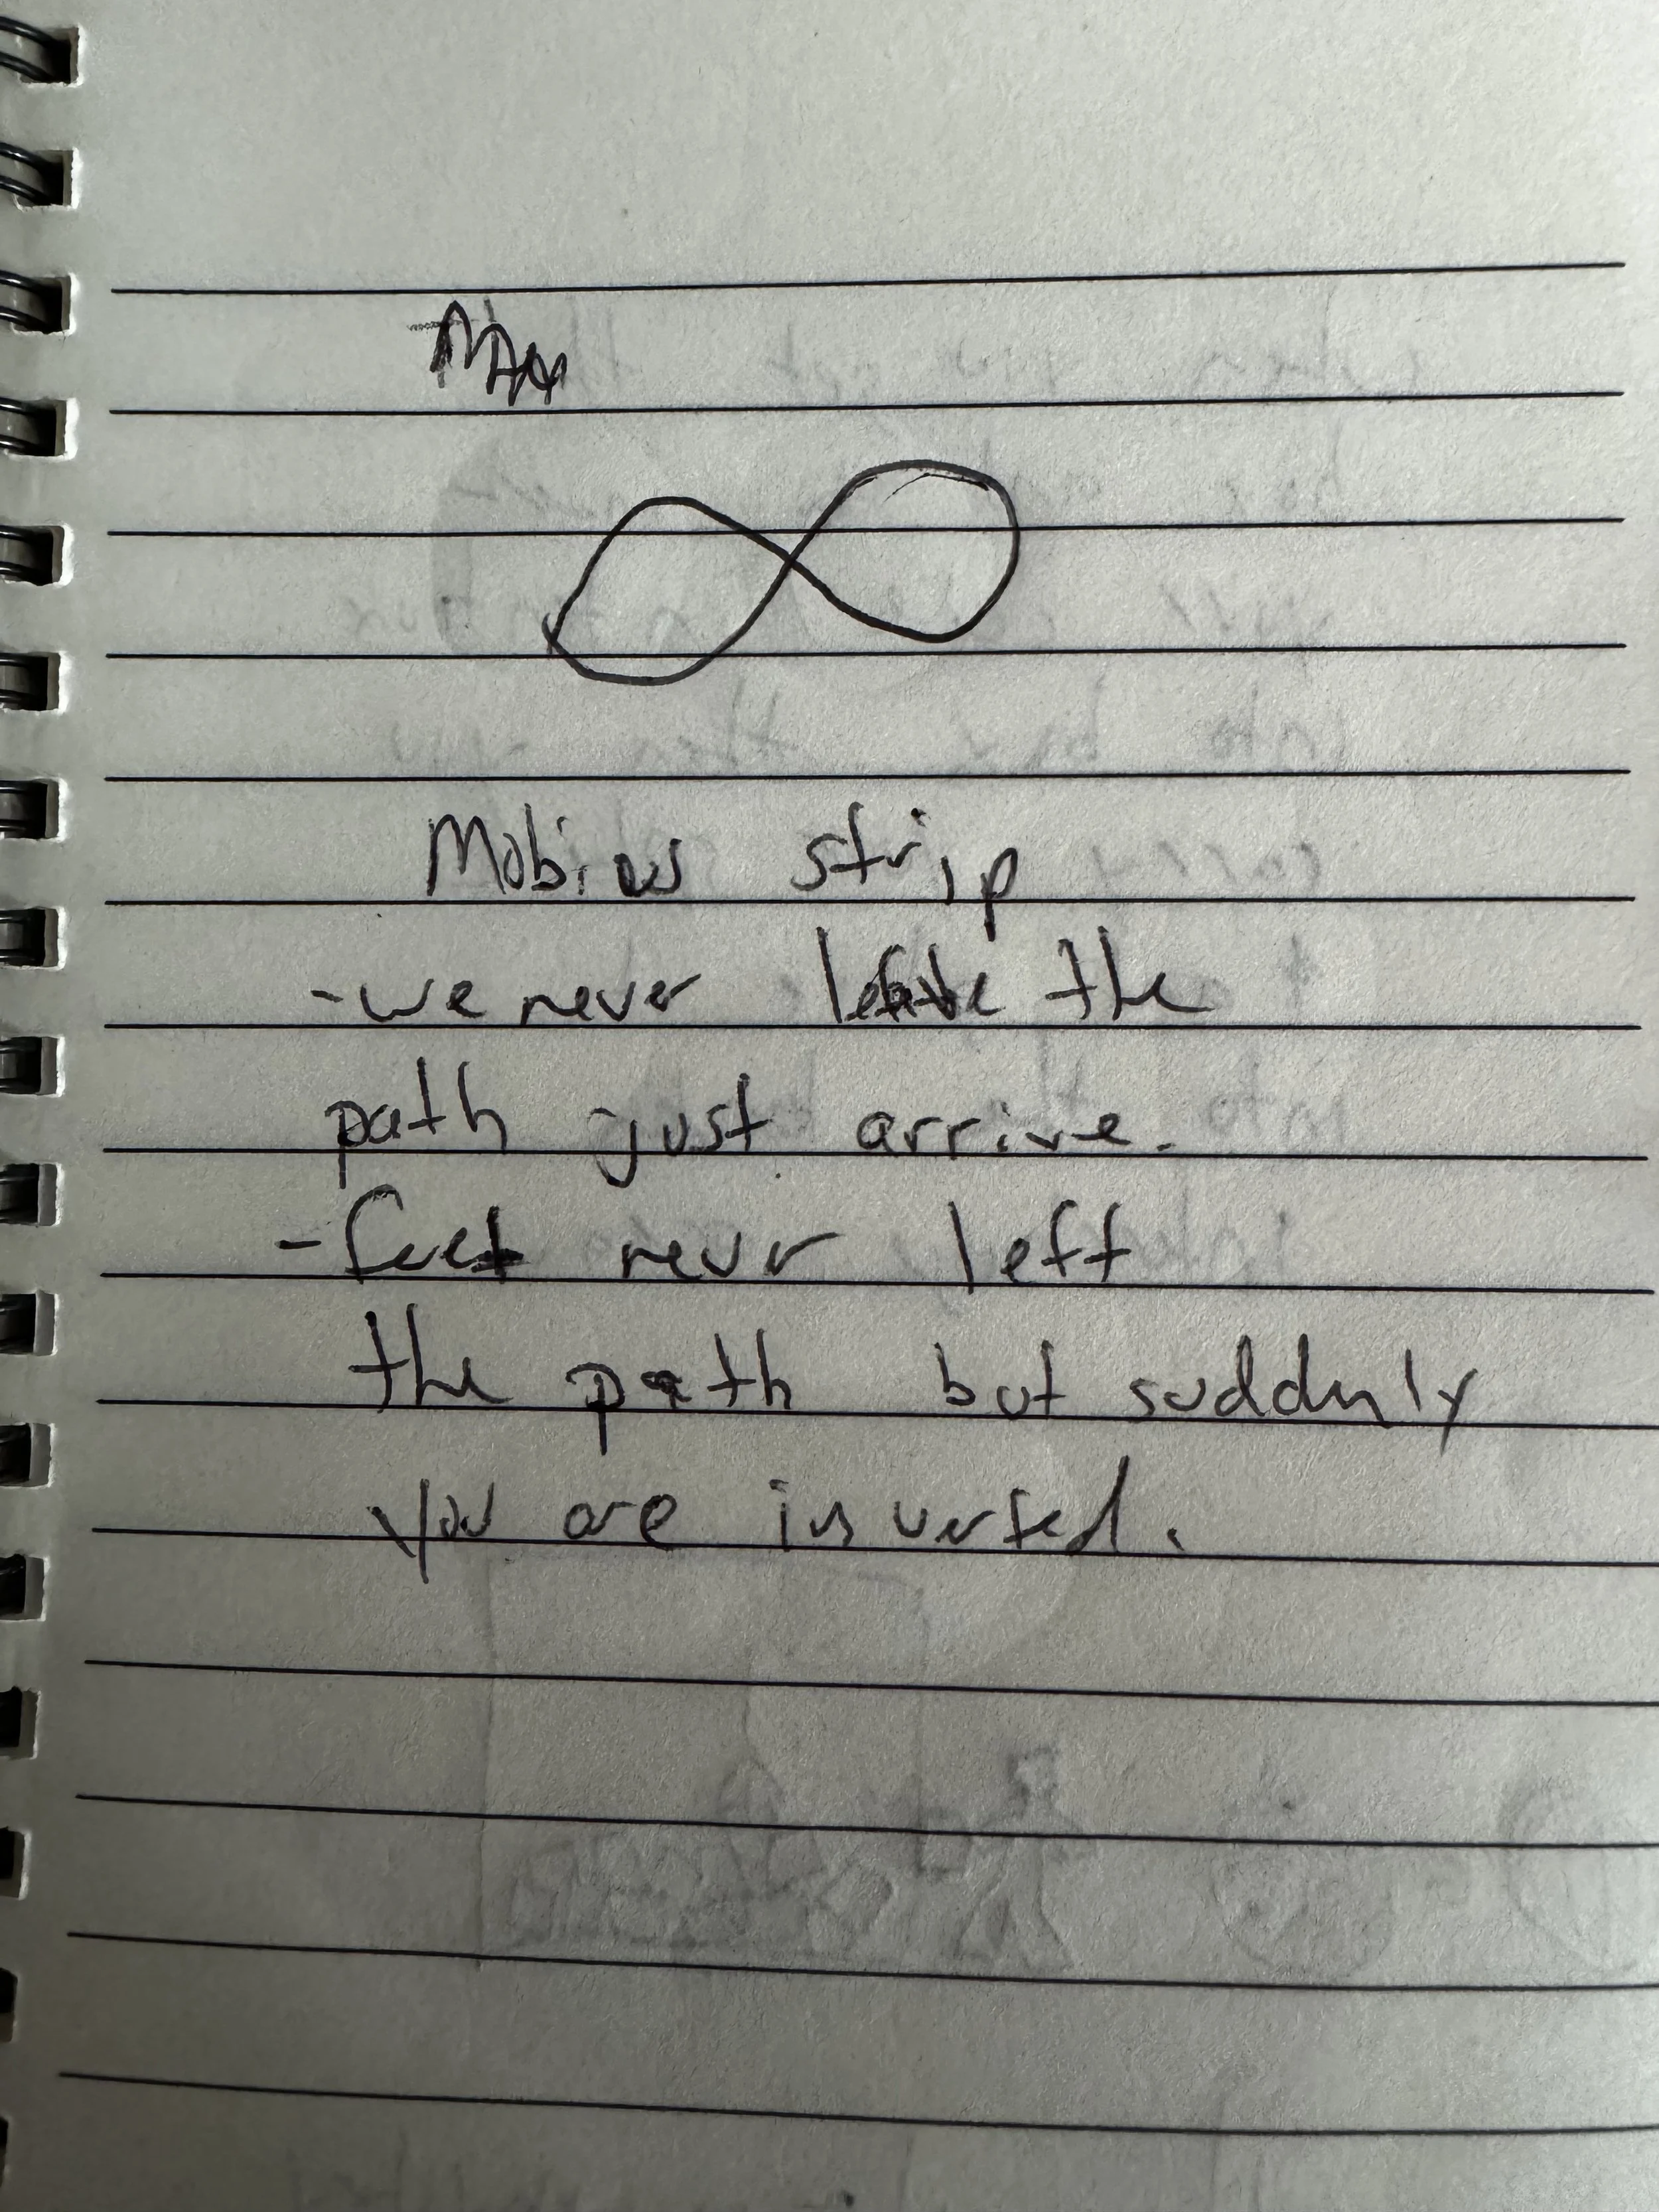 Mobius strip
-we never leave the
path just arrive.
-feet nevr left
the path but suddnly
you are inverted.